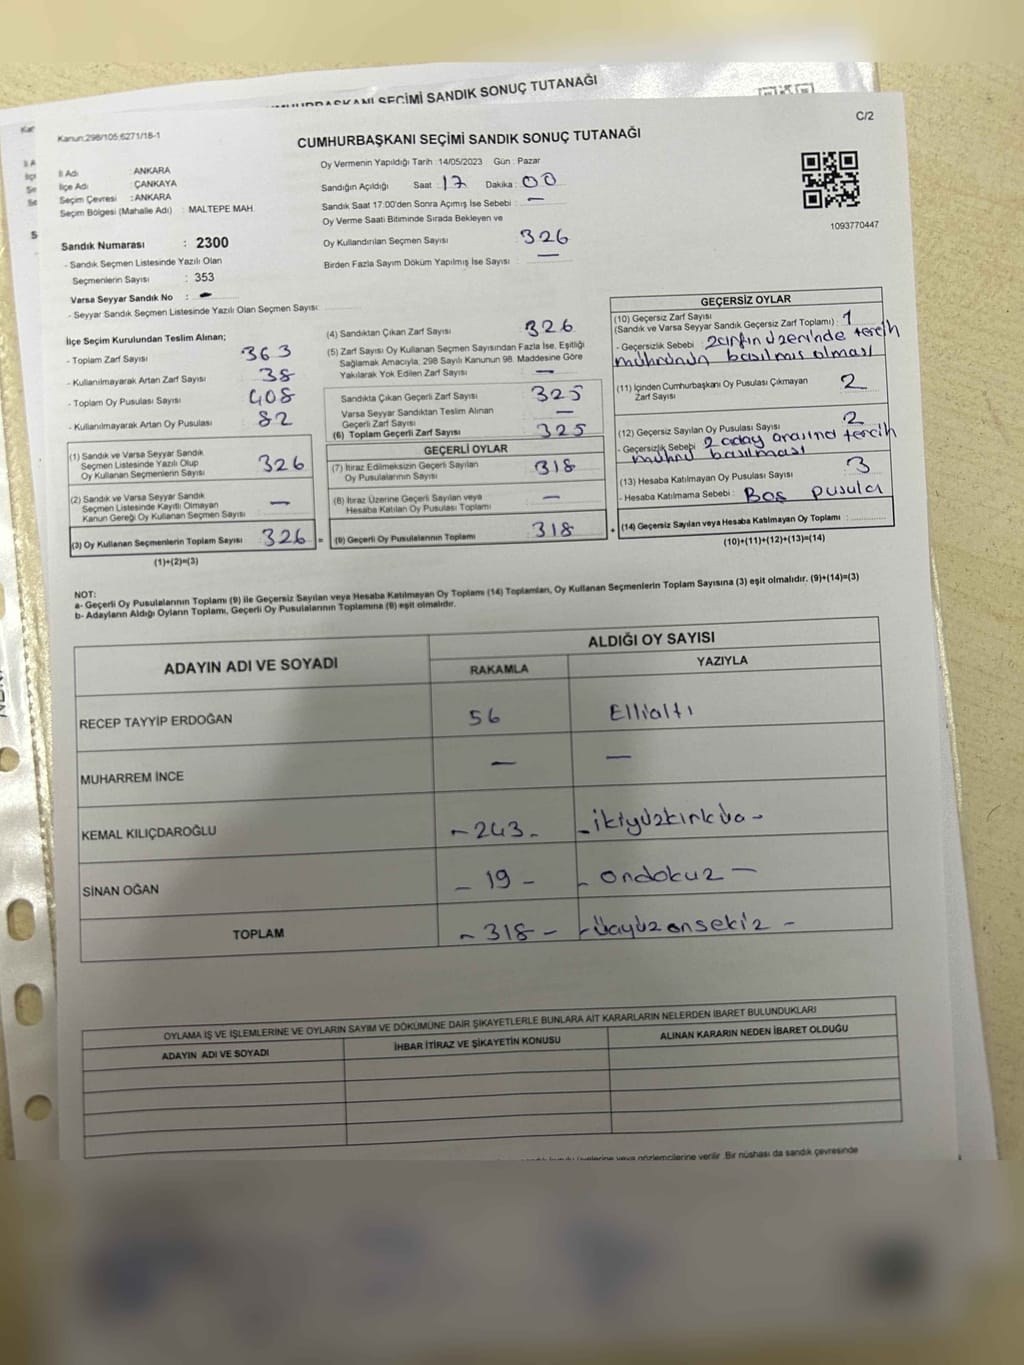 CUMHURBAŞKANI SEÇİMİ SANDIK SONUÇ TUTANAĞI
Kanun:298/105;6271/18-1
C/2
CUMHURBAŞKANI SEÇİMİ SANDIK SONUÇ TUTANAĞI
İl Adı : ANKARA
İlçe Adı : ÇANKAYA
Seçim Çevresi : ANKARA
Seçim Bölgesi (Mahalle Adı) : MALTEPE MAH.
Sandık Numarası : 2300
- Sandık Seçmen Listesinde Yazılı Olan
Seçmenlerin Sayısı : 353
Varsa Seyyar Sandık No : -
- Seyyar Sandık Seçmen Listesinde Yazılı Olan Seçmen Sayısı:
Oy Vermenin Yapıldığı Tarih : 14/05/2023 Gün : Pazar
Sandığın Açıldığı Saat : 17 Dakika : 00
Sandık Saat 17:00'den Sonra Açımış İse Sebebi : -
Oy Verme Saati Bitiminde Sırada Bekleyen ve
Oy Kullandırılan Seçmen Sayısı 326
Birden Fazla Sayım Döküm Yapılmış İse Sayısı : -
1093770447
İlçe Seçim Kurulundan Teslim Alınan;
- Toplam Zarf Sayısı 363
- Kullanılmayarak Artan Zarf Sayısı 38
- Toplam Oy Pusulası Sayısı 408
- Kullanılmayarak Artan Oy Pusulası 82
(1) Sandık ve Varsa Seyyar Sandık
Seçmen Listesinde Yazılı Olup
Oy Kullanan Seçmenlerin Sayısı 326
(2) Sandık ve Varsa Seyyar Sandık
Seçmen Listesinde Kayıtlı Olmayan
Kanun Gereği Oy Kullanan Seçmen Sayısı -
(3) Oy Kullanan Seçmenlerin Toplam Sayısı 326 =
(1)+(2)=(3)
(4) Sandıktan Çıkan Zarf Sayısı 326
(5) Zarf Sayısı Oy Kullanan Seçmen Sayısından Fazla İse, Eşitliği
Sağlamak Amacıyla, 298 Sayılı Kanunun 98. Maddesine Göre
Yakılarak Yok Edilen Zarf Sayısı -
Sandıkta Çıkan Geçerli Zarf Sayısı 325
Varsa Seyyar Sandıktan Teslim Alınan
Geçerli Zarf Sayısı -
(6) Toplam Geçerli Zarf Sayısı 325
GEÇERLİ OYLAR
(7) İtiraz Edilmeksizin Geçerli Sayılan
Oy Pusulalarının Sayısı 318
(8) İtiraz Üzerine Geçerli Sayılan veya
Hesaba Katılan Oy Pusulası Toplamı -
(9) Geçerli Oy Pusulalarının Toplamı 318 +
GEÇERSİZ OYLAR
(10) Geçersiz Zarf Sayısı
(Sandık ve Varsa Seyyar Sandık Geçersiz Zarf Toplamı) : 1
- Geçersizlik Sebebi zarfın üzerinde tercih
mührünün basılmış olması
(11) İçinden Cumhurbaşkanı Oy Pusulası Çıkmayan
Zarf Sayısı 2
(12) Geçersiz Sayılan Oy Pusulası Sayısı 2
- Geçersizlik Sebebi 2 aday arasına tercih
mührü basılması
(13) Hesaba Katılmayan Oy Pusulası Sayısı 3
- Hesaba Katılmama Sebebi : Boş pusula
(14) Geçersiz Sayılan veya Hesaba Katılmayan Oy Toplamı :
(10)+(11)+(12)+(13)=(14)
NOT:
a- Geçerli Oy Pusulalarının Toplamı (9) ile Geçersiz Sayılan veya Hesaba Katılmayan Oy Toplamı (14) Toplamları, Oy Kullanan Seçmenlerin Toplam Sayısına (3) eşit olmalıdır. (9)+(14)=(3)
b- Adayların Aldığı Oyların Toplamı, Geçerli Oy Pusulalarının Toplamına (9) eşit olmalıdır.
ADAYIN ADI VE SOYADI
ALDIĞI OY SAYISI
RAKAMLA YAZIYLA
RECEP TAYYİP ERDOĞAN 56 Ellialtı
MUHARREM İNCE - -
KEMAL KILIÇDAROĞLU - 243 - - ikiyüzkırküç -
SİNAN OĞAN - 19 - - ondokuz -
TOPLAM - 318 - - üçyüzonsekiz -
OYLAMA İŞ VE İŞLEMLERİNE VE OYLARIN SAYIM VE DÖKÜMÜNE DAİR ŞİKAYETLERLE BUNLARA AİT KARARLARIN NELERDEN İBARET BULUNDUKLARI
ADAYIN ADI VE SOYADI İHBAR İTİRAZ VE ŞİKAYETİN KONUSU ALINAN KARARIN NEDEN İBARET OLDUĞU
üyelerine veya gözlemcilerine verilir. Bir nüshası da sandık çevresinde